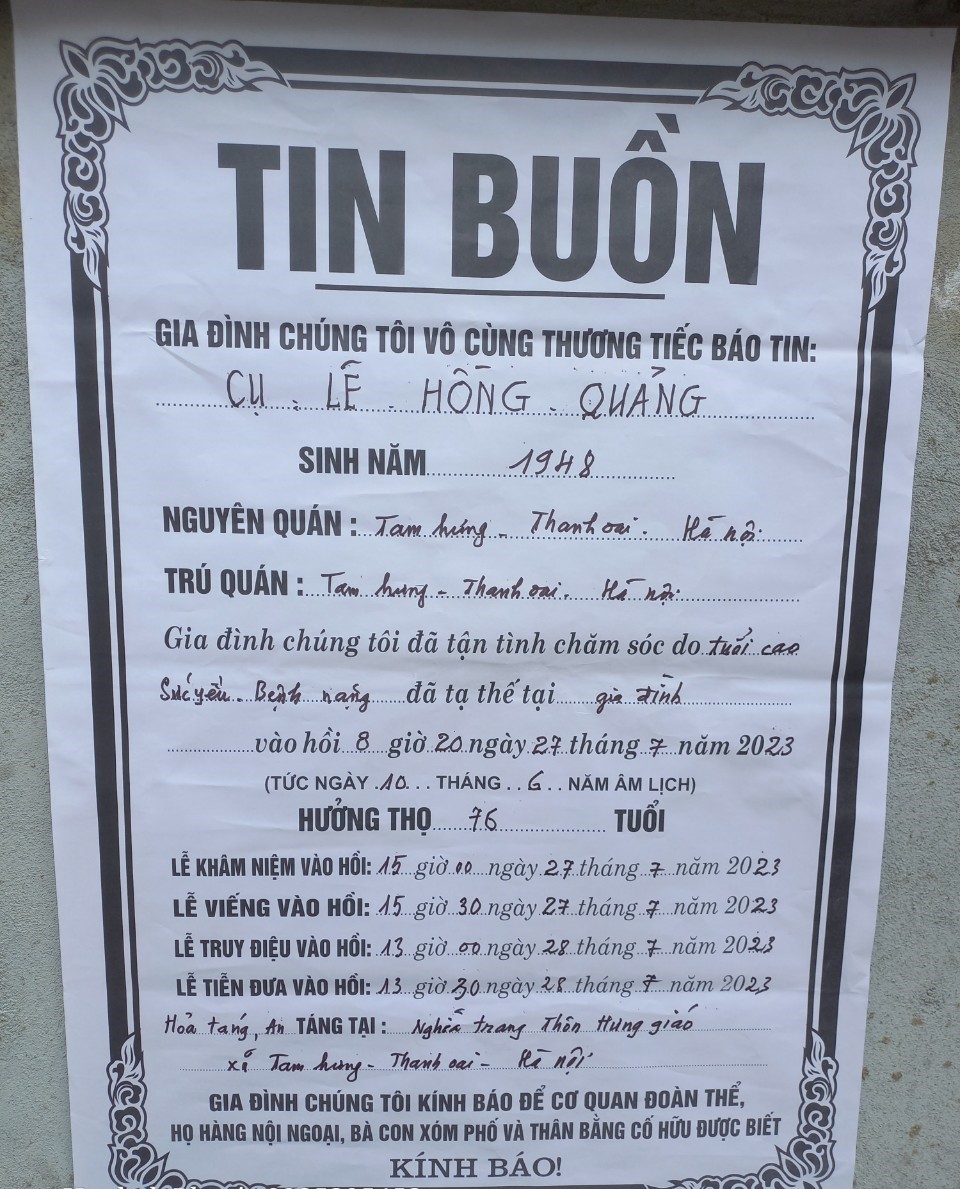 TIN BUỒN
GIA ĐÌNH CHÚNG TÔI VÔ CÙNG THƯƠNG TIẾC BÁO TIN:
CỤ. LÊ. HỒNG. QUẢNG
SINH NĂM 1948
NGUYÊN QUÁN : Tam hưng - Thanh oai. Hà nội
TRÚ QUÁN : Tam hưng - Thanh oai. Hà nội
Gia đình chúng tôi đã tận tình chăm sóc do tuổi cao
Sức yếu. Bệnh nặng đã tạ thế tại gia đình
vào hồi 8 giờ 20 ngày 27 tháng 7 năm 2023
(TỨC NGÀY 10 THÁNG 6 NĂM ÂM LỊCH)
HƯỞNG THỌ 76 TUỔI
LỄ KHÂM NIỆM VÀO HỒI: 15 giờ 00 ngày 27 tháng 7 năm 2023
LỄ VIẾNG VÀO HỒI: 15 giờ 30 ngày 27 tháng 7 năm 2023
LỄ TRUY ĐIỆU VÀO HỒI: 13 giờ 00 ngày 28 tháng 7 năm 2023
LỄ TIỄN ĐƯA VÀO HỒI: 13 giờ 30 ngày 28 tháng 7 năm 2023
Hoả táng, An TÁNG TẠI : Nghĩa trang Thôn Hưng giáo
xã Tam hưng - Thanh oai - Hà nội
GIA ĐÌNH CHÚNG TÔI KÍNH BÁO ĐỂ CƠ QUAN ĐOÀN THỂ,
HỌ HÀNG NỘI NGOẠI, BÀ CON XÓM PHỐ VÀ THÂN BẰNG CỐ HỮU ĐƯỢC BIẾT
KÍNH BÁO!